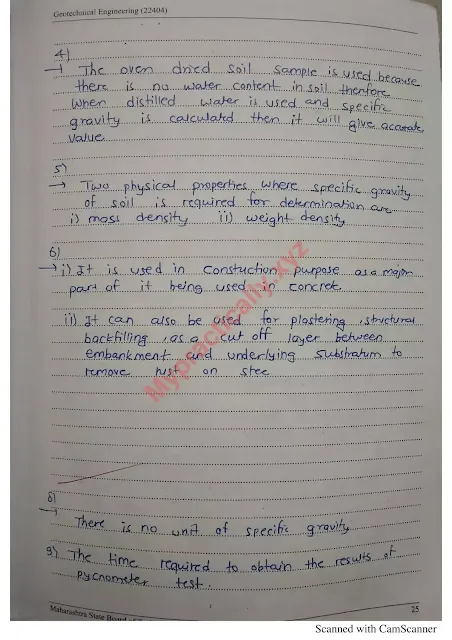 Geotechnical Engineering (22404)
4)
→ The oven dried soil sample is used because
there is no water content in soil therfore
when distilled water is used and specific
gravity is calculated then it will give accurate
value.
5)
→ Two physical properties where specific gravity
of soil is required for determination are
i) mass density ii) weight density
6)
→ i) It is used in constuction purpose as a major
part of it being used in concrete.
ii) It can also be used for plastering, structural
backfilling, as a cut off layer between
embankment and underlying substratum to
remove rust on stee
Mypractically.xyz
8)
→ There is no unit of specific gravity
9) The time required to obtain the results of
pycnometer test.
Maharashtra State Board of
25
Scanned with CamScanner